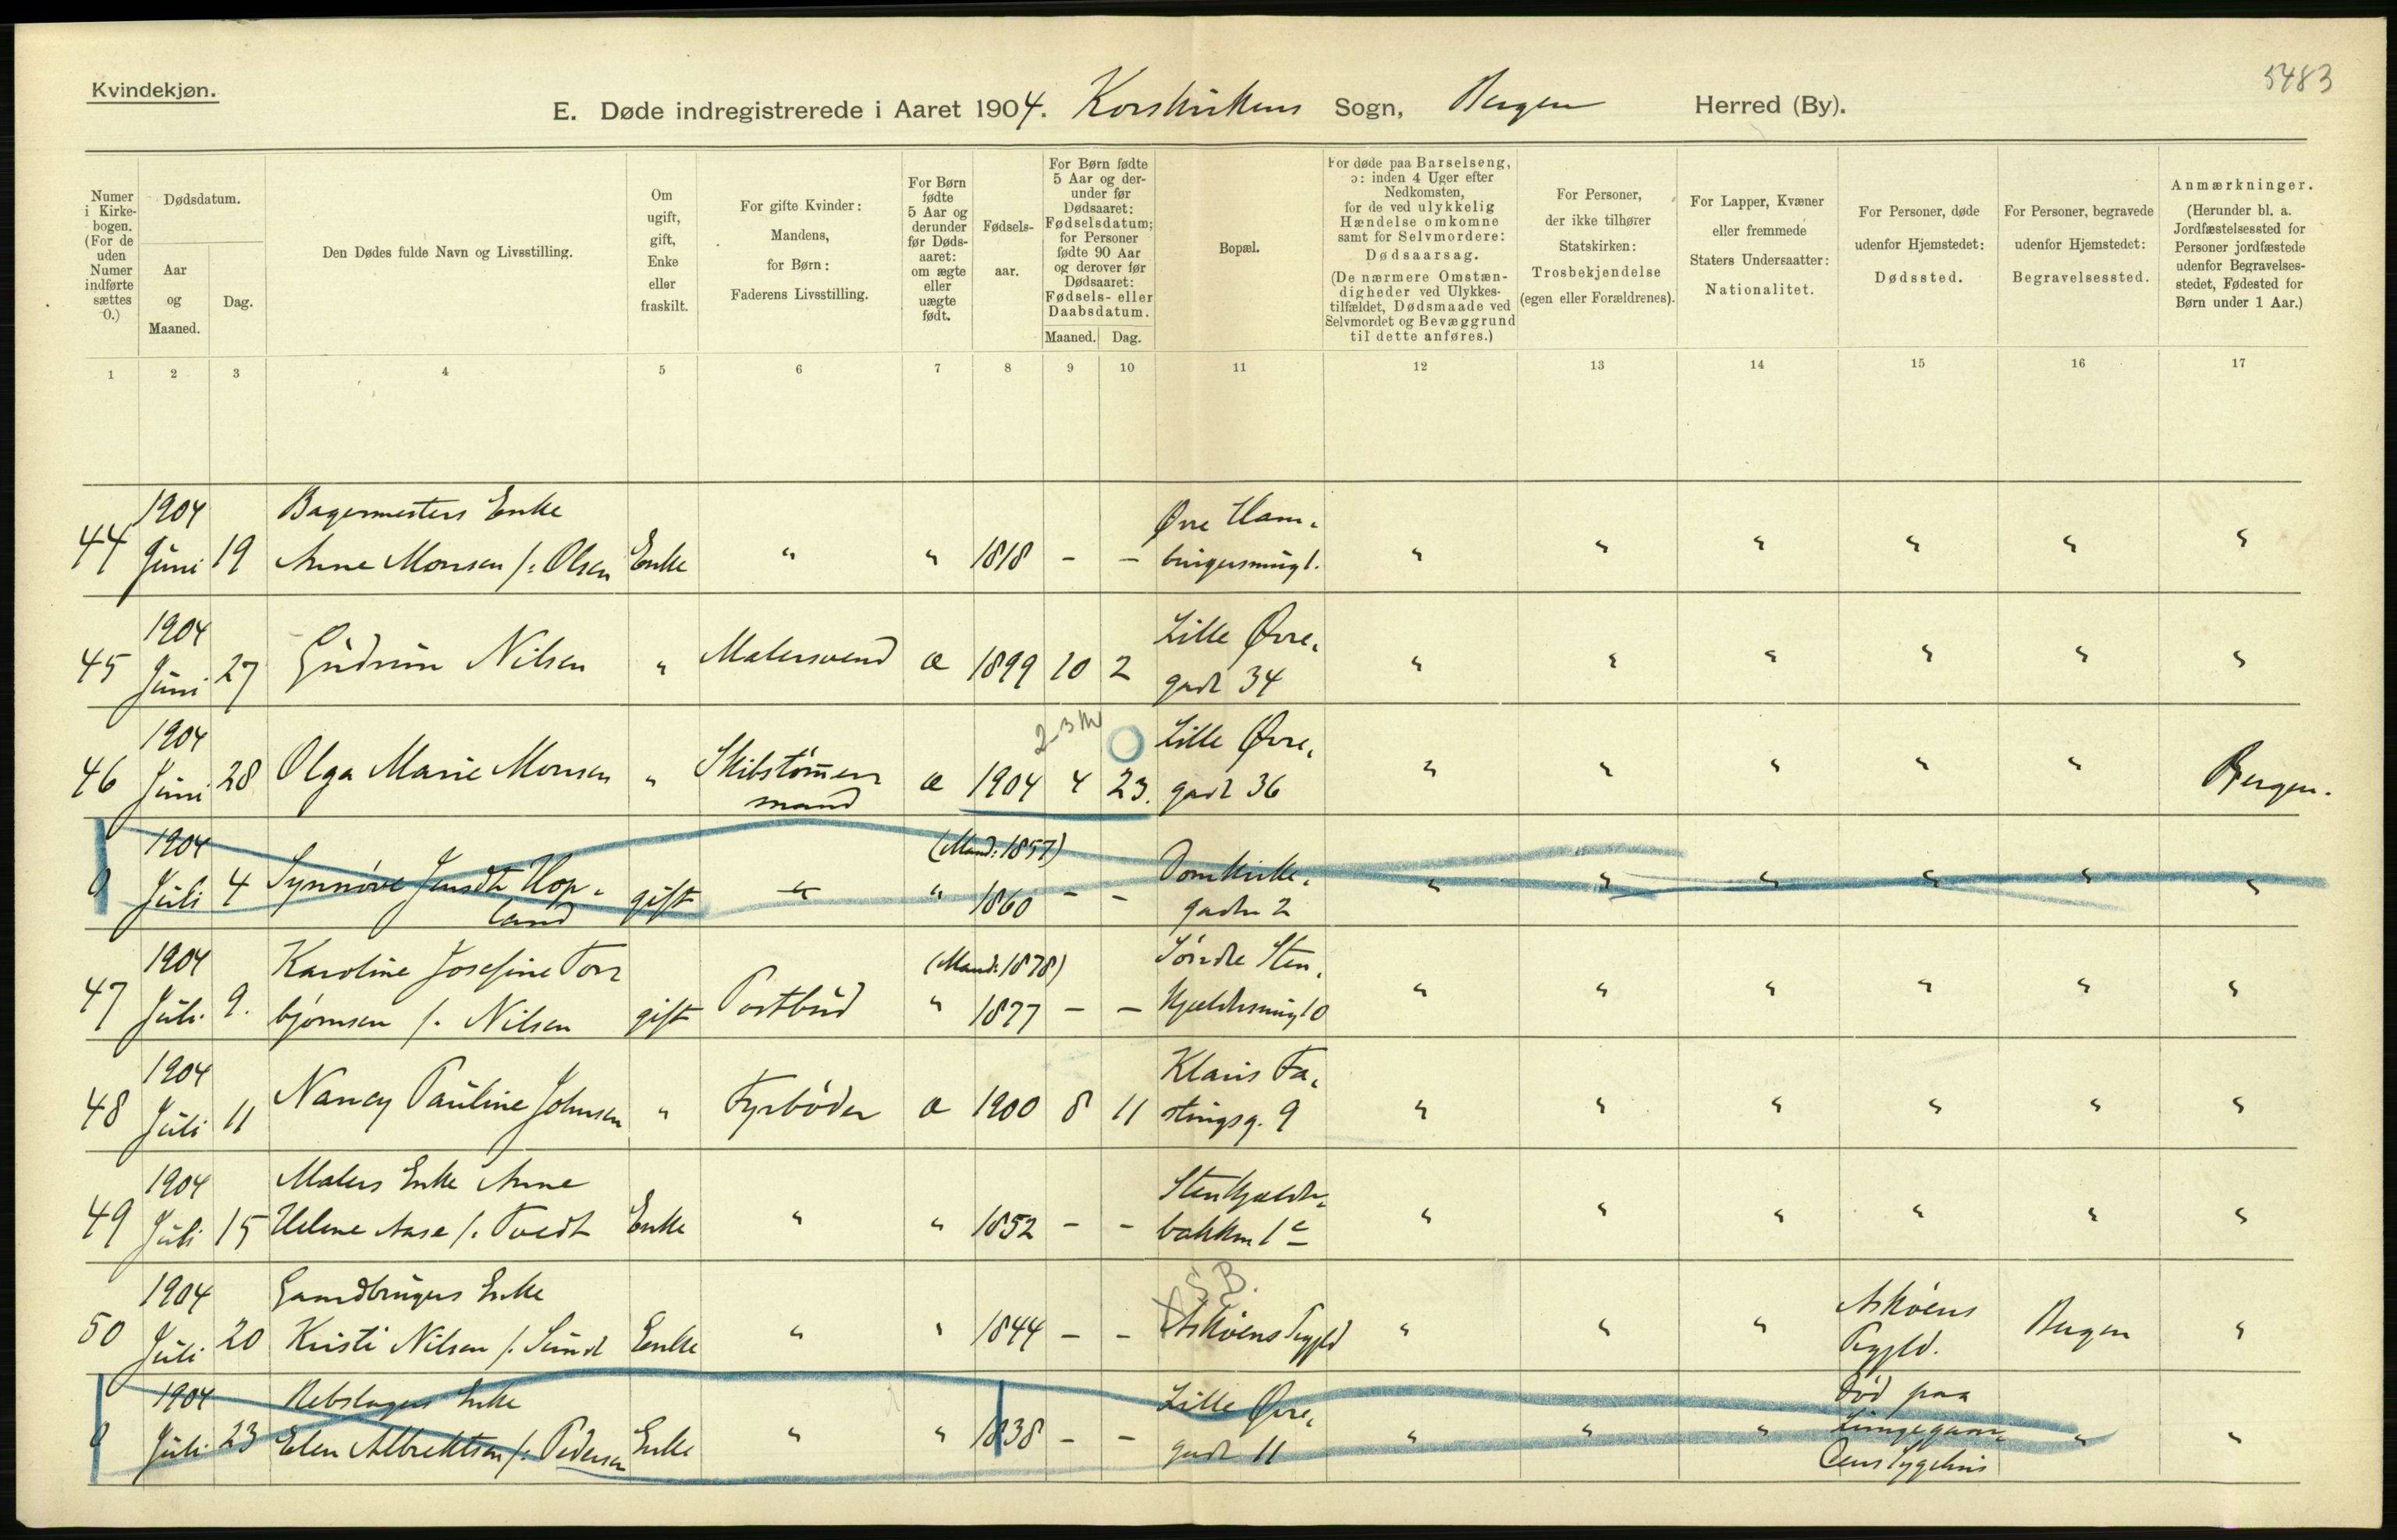 5483
Kvindekjøn.
E. Døde indregistrerede i Aaret 1904. Korskirkens Sogn, Bergen Herred (By).
Numer i Kirkebogen. (For de uden Numer indførte sættes 0.)
Dødsdatum.
Aar og Maaned.
Dag.
Den Dødes fulde Navn og Livsstilling.
Om ugift, gift, Enke eller fraskilt.
For gifte Kvinder: Mandens, for Børn: Faderens Livsstilling.
For Børn fødte 5 Aar og derunder før Dødsaaret: om ægte eller uægte født.
Fødselsaar.
For Børn fødte 5 Aar og derunder før Dødsaaret: Fødselsdatum; for Personer fødte 90 Aar og derover før Dødsaaret: Fødsels- eller Daabsdatum.
Maaned. Dag.
Bopæl.
For døde paa Barselseng, ɔ: inden 4 Uger efter Nedkomsten, for de ved ulykkelig Hændelse omkomne samt for Selvmordere: Dødsaarsag.
(De nærmere Omstændigheder ved Ulykkestilfældet, Dødsmaade ved Selvmordet og Bevæggrund til dette anføres.)
For Personer, der ikke tilhører Statskirken: Trosbekjendelse (egen eller Forældrenes).
For Lapper, Kvæner eller fremmede Staters Undersaatter: Nationalitet.
For Personer, døde udenfor Hjemstedet: Dødssted.
For Personer, begravede udenfor Hjemstedet: Begravelsessted.
Anmærkninger. (Herunder bl. a. Jordfæstelsessted for Personer jordfæstede udenfor Begravelsesstedet, Fødested for Børn under 1 Aar.)
1 2 3 4 5 6 7 8 9 10 11 12 13 14 15 16 17
44 1904 Juni 19 Bagermesters Enke Anne Monsen f. Olsen Enke " " 1818 - - Øvre Hamburgersmug 1. " " " " " "
45 1904 Juni 27 Gudrun Nilsen " Malersvend æ 1899 10 2 Lille Øvregade 34 " " " " " "
2-3 M
46 1904 Juni 28 Olga Marie Monsen " Skibstømermand æ 1904 4 23. Lille Øvregade 36 " " " " " Bergen.
0 1904 Juli 4 Synnøve Jensdtr Hopland gift " (Mand: 1857) " 1860 - - Domkirkegaden 2 " " " " " "
47 1904 Juli 9. Karoline Josefine Torbjørnsen f. Nilsen gift Postbud (Mand: 1878) " 1877 - - Søndre Stenkjeldersmug 10 " " " " " "
48 1904 Juli 11 Nancy Pauline Johnsen " Fyrbøder æ 1900 8 11 Klaus Fastingsg. 9 " " " " " "
49 1904 Juli 15 Malers Enke Anne Helene Aase f. Tvedt Enke " " 1852 - - Stenkjelderbakken 1 c " " " " " "
50 1904 Juli 20 Gaardbrugers Enke Kristi Nilsen f. Sund Enke " " 1844 - - Askøens Prgjld " " " Askøens Prgjld. Bergen "
0 1904 Juli 23 Rebslagers Enke Elen Albrektsen f. Pedersen Enke " " 1838 - - Lille Øvregade 11 " " " Død paa Lungegaardens Sygehus " "